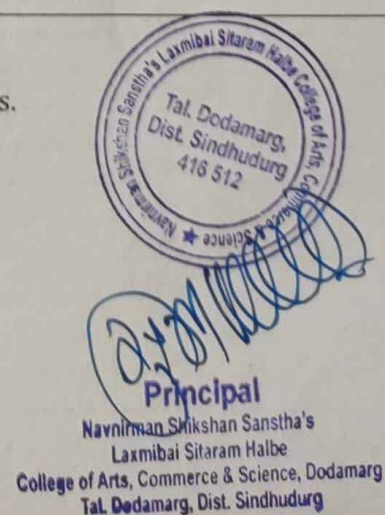 s.
Navnirman Shikshan Sanstha's Laxmibai Sitaram Halbe College of Arts, Commerce & Science ★
Tal. Dodamarg,
Dist. Sindhudurg
416 512
Principal
Navnirman Shikshan Sanstha's
Laxmibai Sitaram Halbe
College of Arts, Commerce & Science, Dodamarg
Tal. Dodamarg, Dist. Sindhudurg